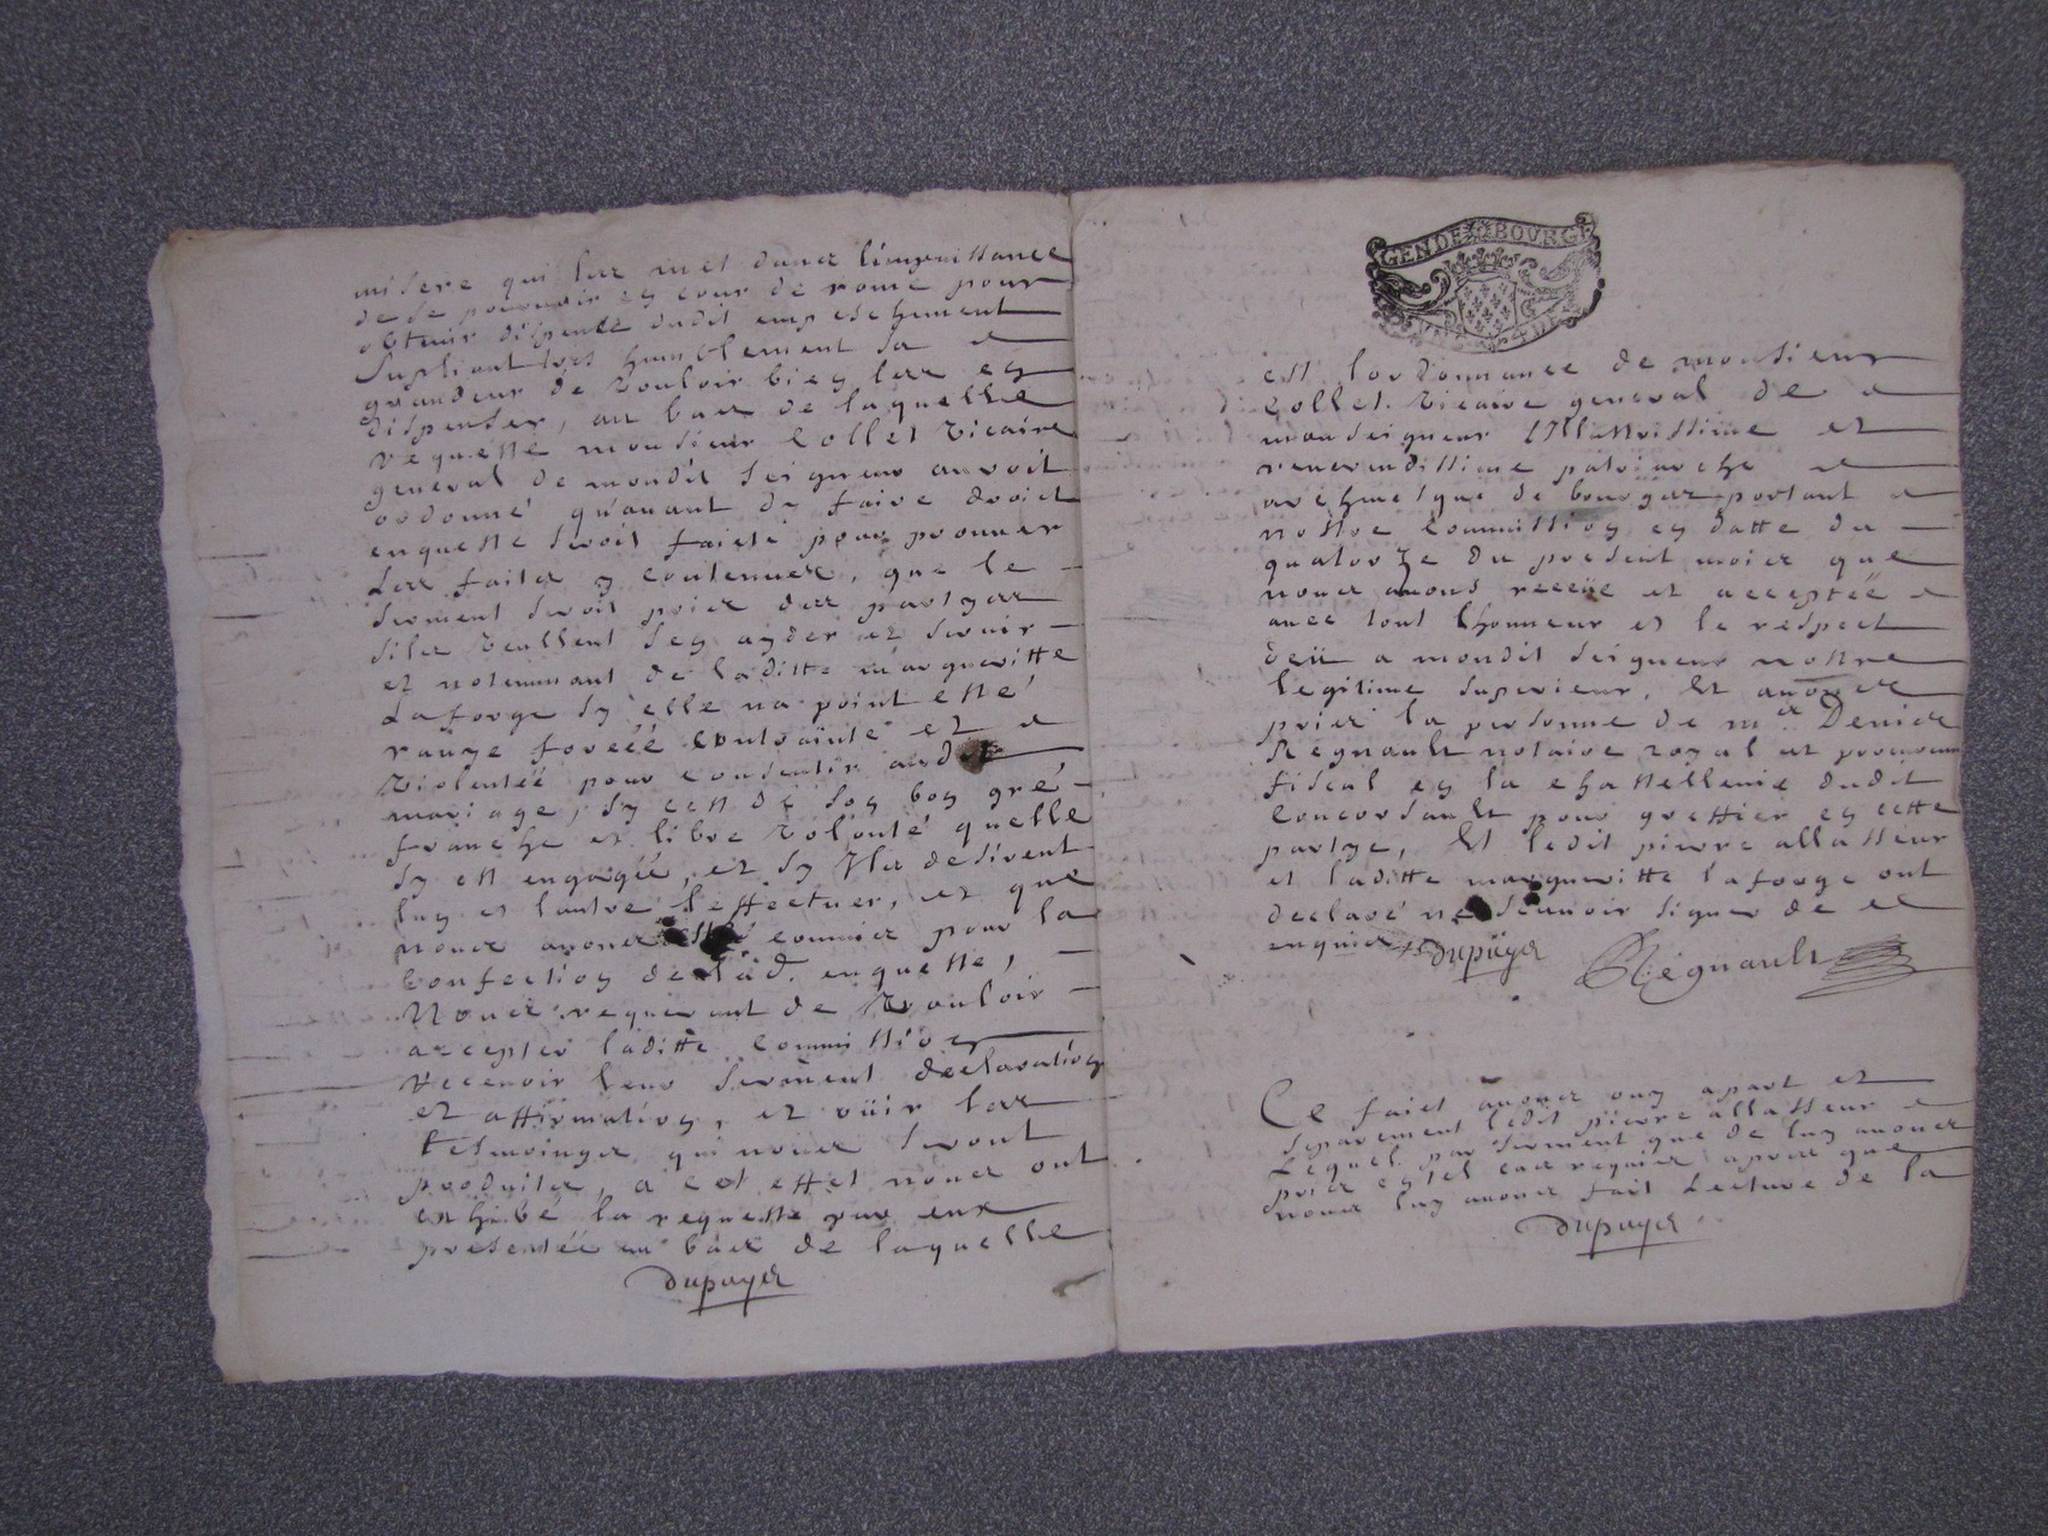 misere qui les met dans l'impuissance
de se pouruoir en cour de rome pour
obtenir dispense dudit empeschement
Supliant tres humblement sa
grandeur de vouloir bien les en
dispenser, au bas de laquelle
requeste monsieur Collet vicaire
general de mondit seigneur auroit
ordonné qu'auant dy faire droict
enqueste seroit faicte pour prouuer
Les faits y contenues, que le
serment seroit pris des partyes
sils veullent sen ayder et seruir
et notemmant de laditte margueritte
Laforge sy elle na point esté
rauye forcéé contrainte et
violentéé pour consentir aud
mariage, sy cest de son bon gré
franche et libre volonté quelle
sy est engagéé, et sy Ils desirent
luy et lautre l'effectuer, et que
nous auons esté commis pour la
Confection de lad. enqueste,
Nous requerant de vouloir
accepter laditte commission
recevoir leur serment declaration
et affirmation, et oüir les
tesmoingz qui nous seront
produits, a cet effet nous ont
exhibé la requeste par eux
presentéé au bas de laquelle
Dupuyes
GENDE BOVRG
est lordonnance de monsieur
Collet. vicaire general de
monseigneur Illustrissime et
reuerendissime patriarche
archeuesque de bourges portant
nostre commission en datte du
quatorze du present mois que
nous auons receüe et acceptéé
auec tout lhonneur et le respect
deü a mondit seigneur nostre
legitime superieur, Et auons
pris la personne de me Denis
Regnault notaire royal et procureur
fiscal en la chastellenie dudit
Concorsault pour greffier en cette
partye, Et ledit pierre allasseur
et laditte margueritte laforge ont
declaré ne scauoir signer de ce
enquis Dupuyes Régnault
Ce faict auons ouy apart et
separement ledit pierre allasseur
Lequel par serment que de luy auons
pris en tel cas requis apres que
nous luy auons fait Lecture de la
Dupuyes